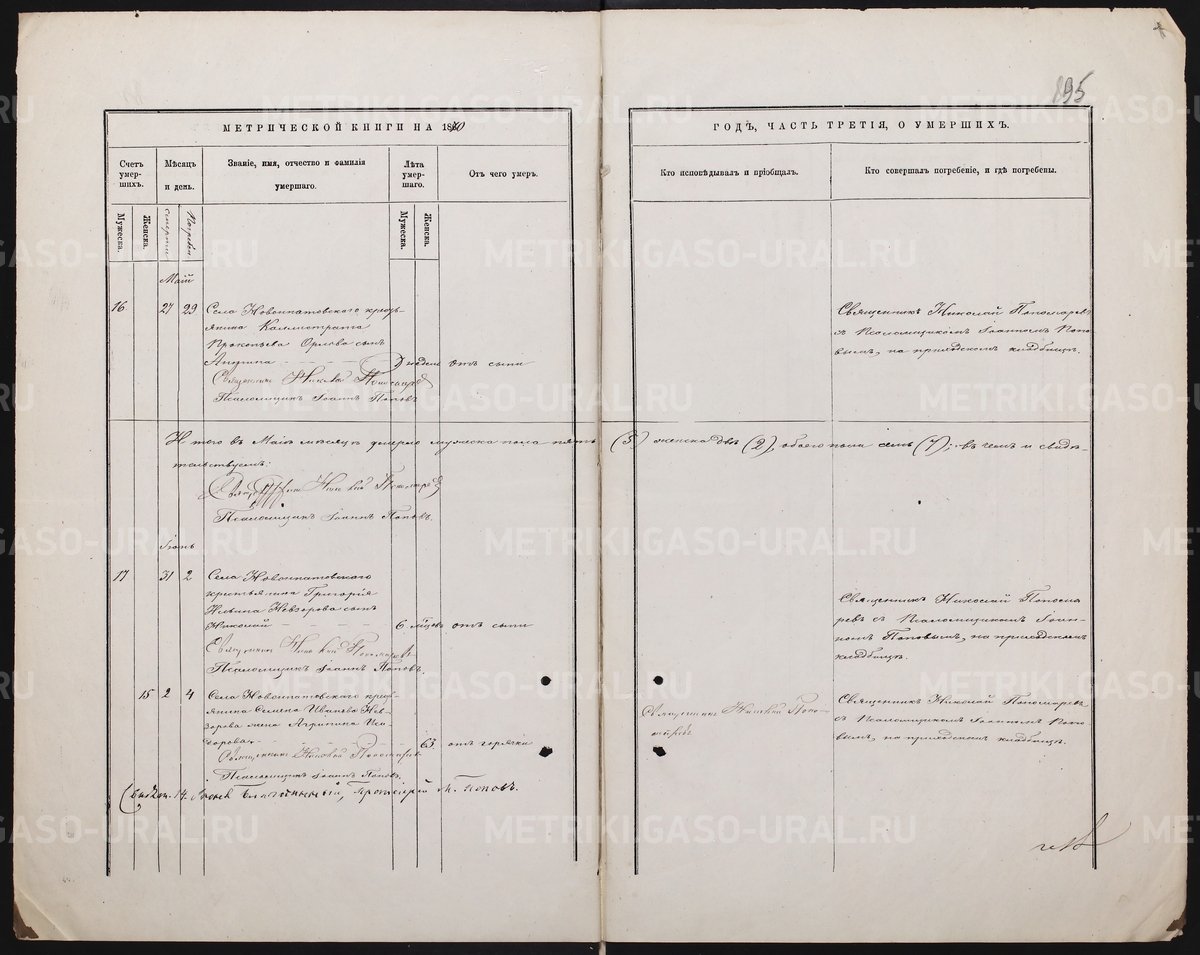 195
МЕТРИЧЕСКОЙ КНИГИ НА 1880
ГОДЪ, ЧАСТЬ ТРЕТІЯ, О УМЕРШИХЪ.
Счетъ умер- шихъ.
Мѣсяцъ и день.
Званіе, имя, отчество и фамилія умершаго.
Лѣта умер- шаго.
Отъ чего умеръ.
Кто исповѣдывалъ и пріобщалъ.
Кто совершалъ погребеніе, и гдѣ погребены.
Мужеска.
Женска.
смерти
Погребен
Мужеска.
Женска.
Маій
16 27 29 Села Новоипатовскаго кресть-
янина Каллистрата
Прокопьева Орлова сынъ
недели отъ сыпи
Священникъ Николай Пономаревъ
Псаломщикъ Іоаннъ Поповъ
Священникъ Николай Пономаревъ
съ Псаломщикомъ Іоанномъ Попо
вымъ, на приходскомъ кладбищѣ.
Итого въ Маіѣ мѣсяцѣ умерло мужеска пола пять (5) женска двѣ (2), обоего пола семь (7); въ чемъ и свидѣ-
тельствуемъ:
Священникъ Николай Пономаревъ
Псаломщикъ Іоаннъ Поповъ.
Іюнь
17 31 2 Села Новоипатовскаго
крестьянина Григорія
Ильина Невзорова сынъ
Николай 6 мѣсяцов отъ сыпи
Священникъ Николай Пономаревъ
Псаломщикъ Іоаннъ Поповъ.
Священникъ Николай Понома
ревъ съ Псаломщикомъ Іоан-
номъ Поповымъ, на приходскомъ
кладбищѣ.
15 2 4 Села Новоипатовскаго крест-
янина Семена Иванова Нев-
зорова жена Агрипина Иси-
дорова 63 отъ горячки
Священникъ Николай Пономаревъ
Псаломщикъ Іоаннъ Поповъ.
Священникъ Николай Поно-
маревъ
Священникъ Николай Пономаревъ
съ Псаломщикомъ Іоанномъ Попо
вымъ, на приходскомъ кладбищѣ.
14. Благочинный, Протоіерей М. Поповъ.
METRIKI.GASO-URAL.RU